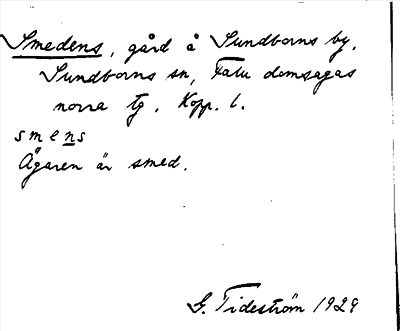 Smedens, gård å Sundborns by,
Sundborns sn, Falu domsagas
norra tg. Kopp. l.
smens
Ägaren är smed.
G. Tideström 1929